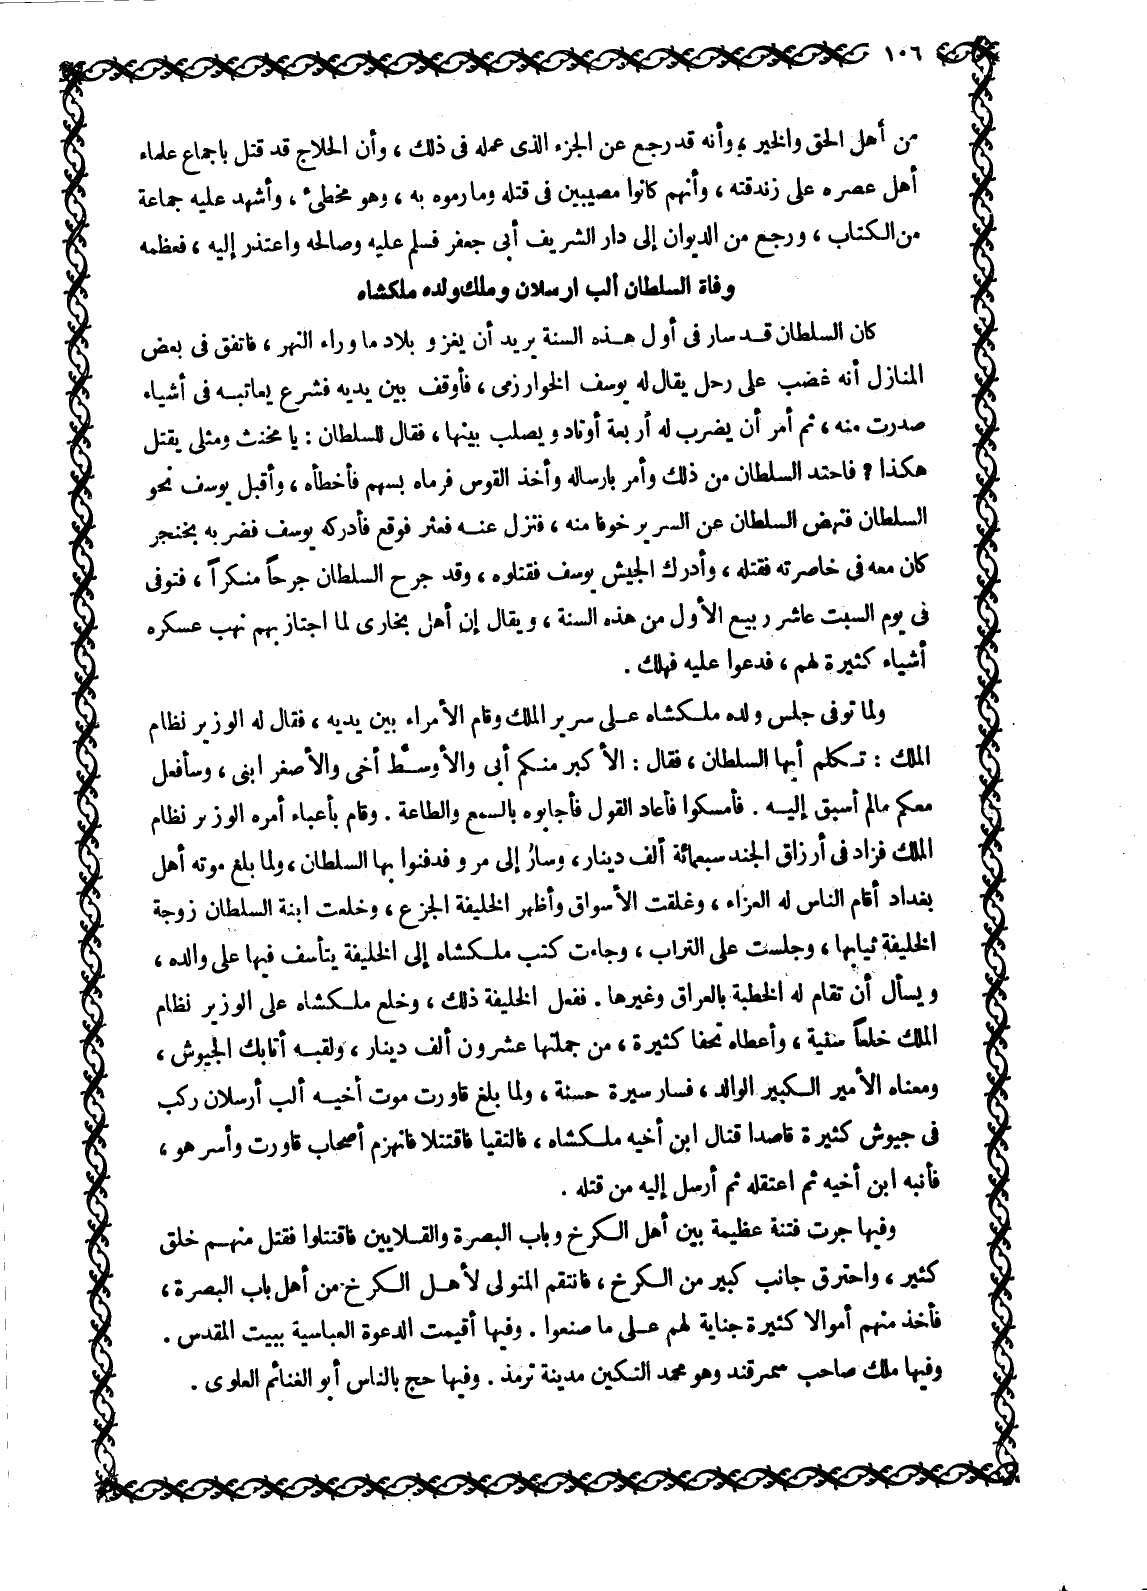 ١٠٦
من أهل الحق والخير ، وأنه قد رجع عن الجزء الذى عمله فى ذلك ، وأن الحلاج قد قتل باجماع علماء
أهل عصره على زندقته ، وأنهم كانوا مصيبين فى قتله وما رموه به ، وهو مخطىء ، وأشهد عليه جماعة
من الكتاب ، ورجع من الديوان إلى دار الشريف أبى جعفر فسلم عليه وصالحه واعتذر إليه ، فعظمه
وفاة السلطان ألب ارسلان وملك ولده ملكشاه
كان السلطان قد سار فى أول هذه السنة يريد أن يغزو بلاد ما وراء النهر ، فاتفق فى بعض
المنازل أنه غضب على رحل يقال له يوسف الخوارزمى ، فأوقف بين يديه فشرع يعاتبه فى أشياء
صدرت منه ، ثم أمر أن يضرب له أربعة أوتاد ويصلب بينها ، فقال للسلطان : يا مخنث ومثلى يقتل
هكذا ؟ فاحتد السلطان من ذلك وأمر بارساله وأخذ القوس فرماه بسهم فأخطأه ، وأقبل يوسف نحو
السلطان فنهض السلطان عن السرير خوفا منه ، فنزل عنه فعثر فوقع فأدركه يوسف فضربه بخنجر
كان معه فى خاصرته فقتله ، وأدرك الجيش يوسف فقتلوه ، وقد جرح السلطان جرحاً منكراً ، فتوفى
فى يوم السبت عاشر ربيع الأول من هذه السنة ، ويقال إن أهل بخارى لما اجتاز بهم نهب عسكره
أشياء كثيرة لهم ، فدعوا عليه فهلك .
ولما توفى جلس ولده ملكشاه على سرير الملك وقام الأمراء بين يديه ، فقال له الوزير نظام
الملك : تكلم أيها السلطان ، فقال : الأكبر منكم أبى والأوسط أخى والأصغر ابنى ، وسأفعل
معكم مالم أسبق إليه . فأمسكوا فأعاد القول فأجابوه بالسمع والطاعة . وقام بأعباء أمره الوزير نظام
الملك فزاد فى أرزاق الجند سبعمائة ألف دينار ، وسار إلى مرو فدفنوا بها السلطان ، ولما بلغ موته أهل
بغداد أقام الناس له العزاء ، وغلقت الأسواق وأظهر الخليفة الجزع ، وخلعت ابنة السلطان زوجة
الخليفة ثيابها ، وجلست على التراب ، وجاءت كتب ملكشاه إلى الخليفة يتأسف فيها على والده ،
ويسأل أن تقام له الخطبة بالعراق وغيرها . ففعل الخليفة ذلك ، وخلع ملكشاه على الوزير نظام
الملك خلعاً سنية ، وأعطاه تحفا كثيرة ، من جملتها عشرون ألف دينار ، ولقبه أتابك الجيوش ،
ومعناه الأمير الكبير الوالد ، فسار سيرة حسنة ، ولما بلغ قاورت موت أخيه ألب أرسلان ركب
فى جيوش كثيرة قاصدا قتال ابن أخيه ملكشاه ، فالتقيا فاقتتلا فانهزم أصحاب قاورت وأسر هو ،
فأنبه ابن أخيه ثم اعتقله ثم أرسل إليه من قتله .
وفيها جرت فتنة عظيمة بين أهل الكرخ وباب البصرة والقلايين فاقتتلوا فقتل منهم خلق
كثير ، واحترق جانب كبير من الكرخ ، فانتقم المتولى لأهل الكرخ من أهل باب البصرة ،
فأخذ منهم أموالا كثيرة جناية لهم على ما صنعوا . وفيها أقيمت الدعوة العباسية ببيت المقدس .
وفيها ملك صاحب سمرقند وهو محمد التكين مدينة ترمذ . وفيها حج بالناس أبو الغنائم العلوى .